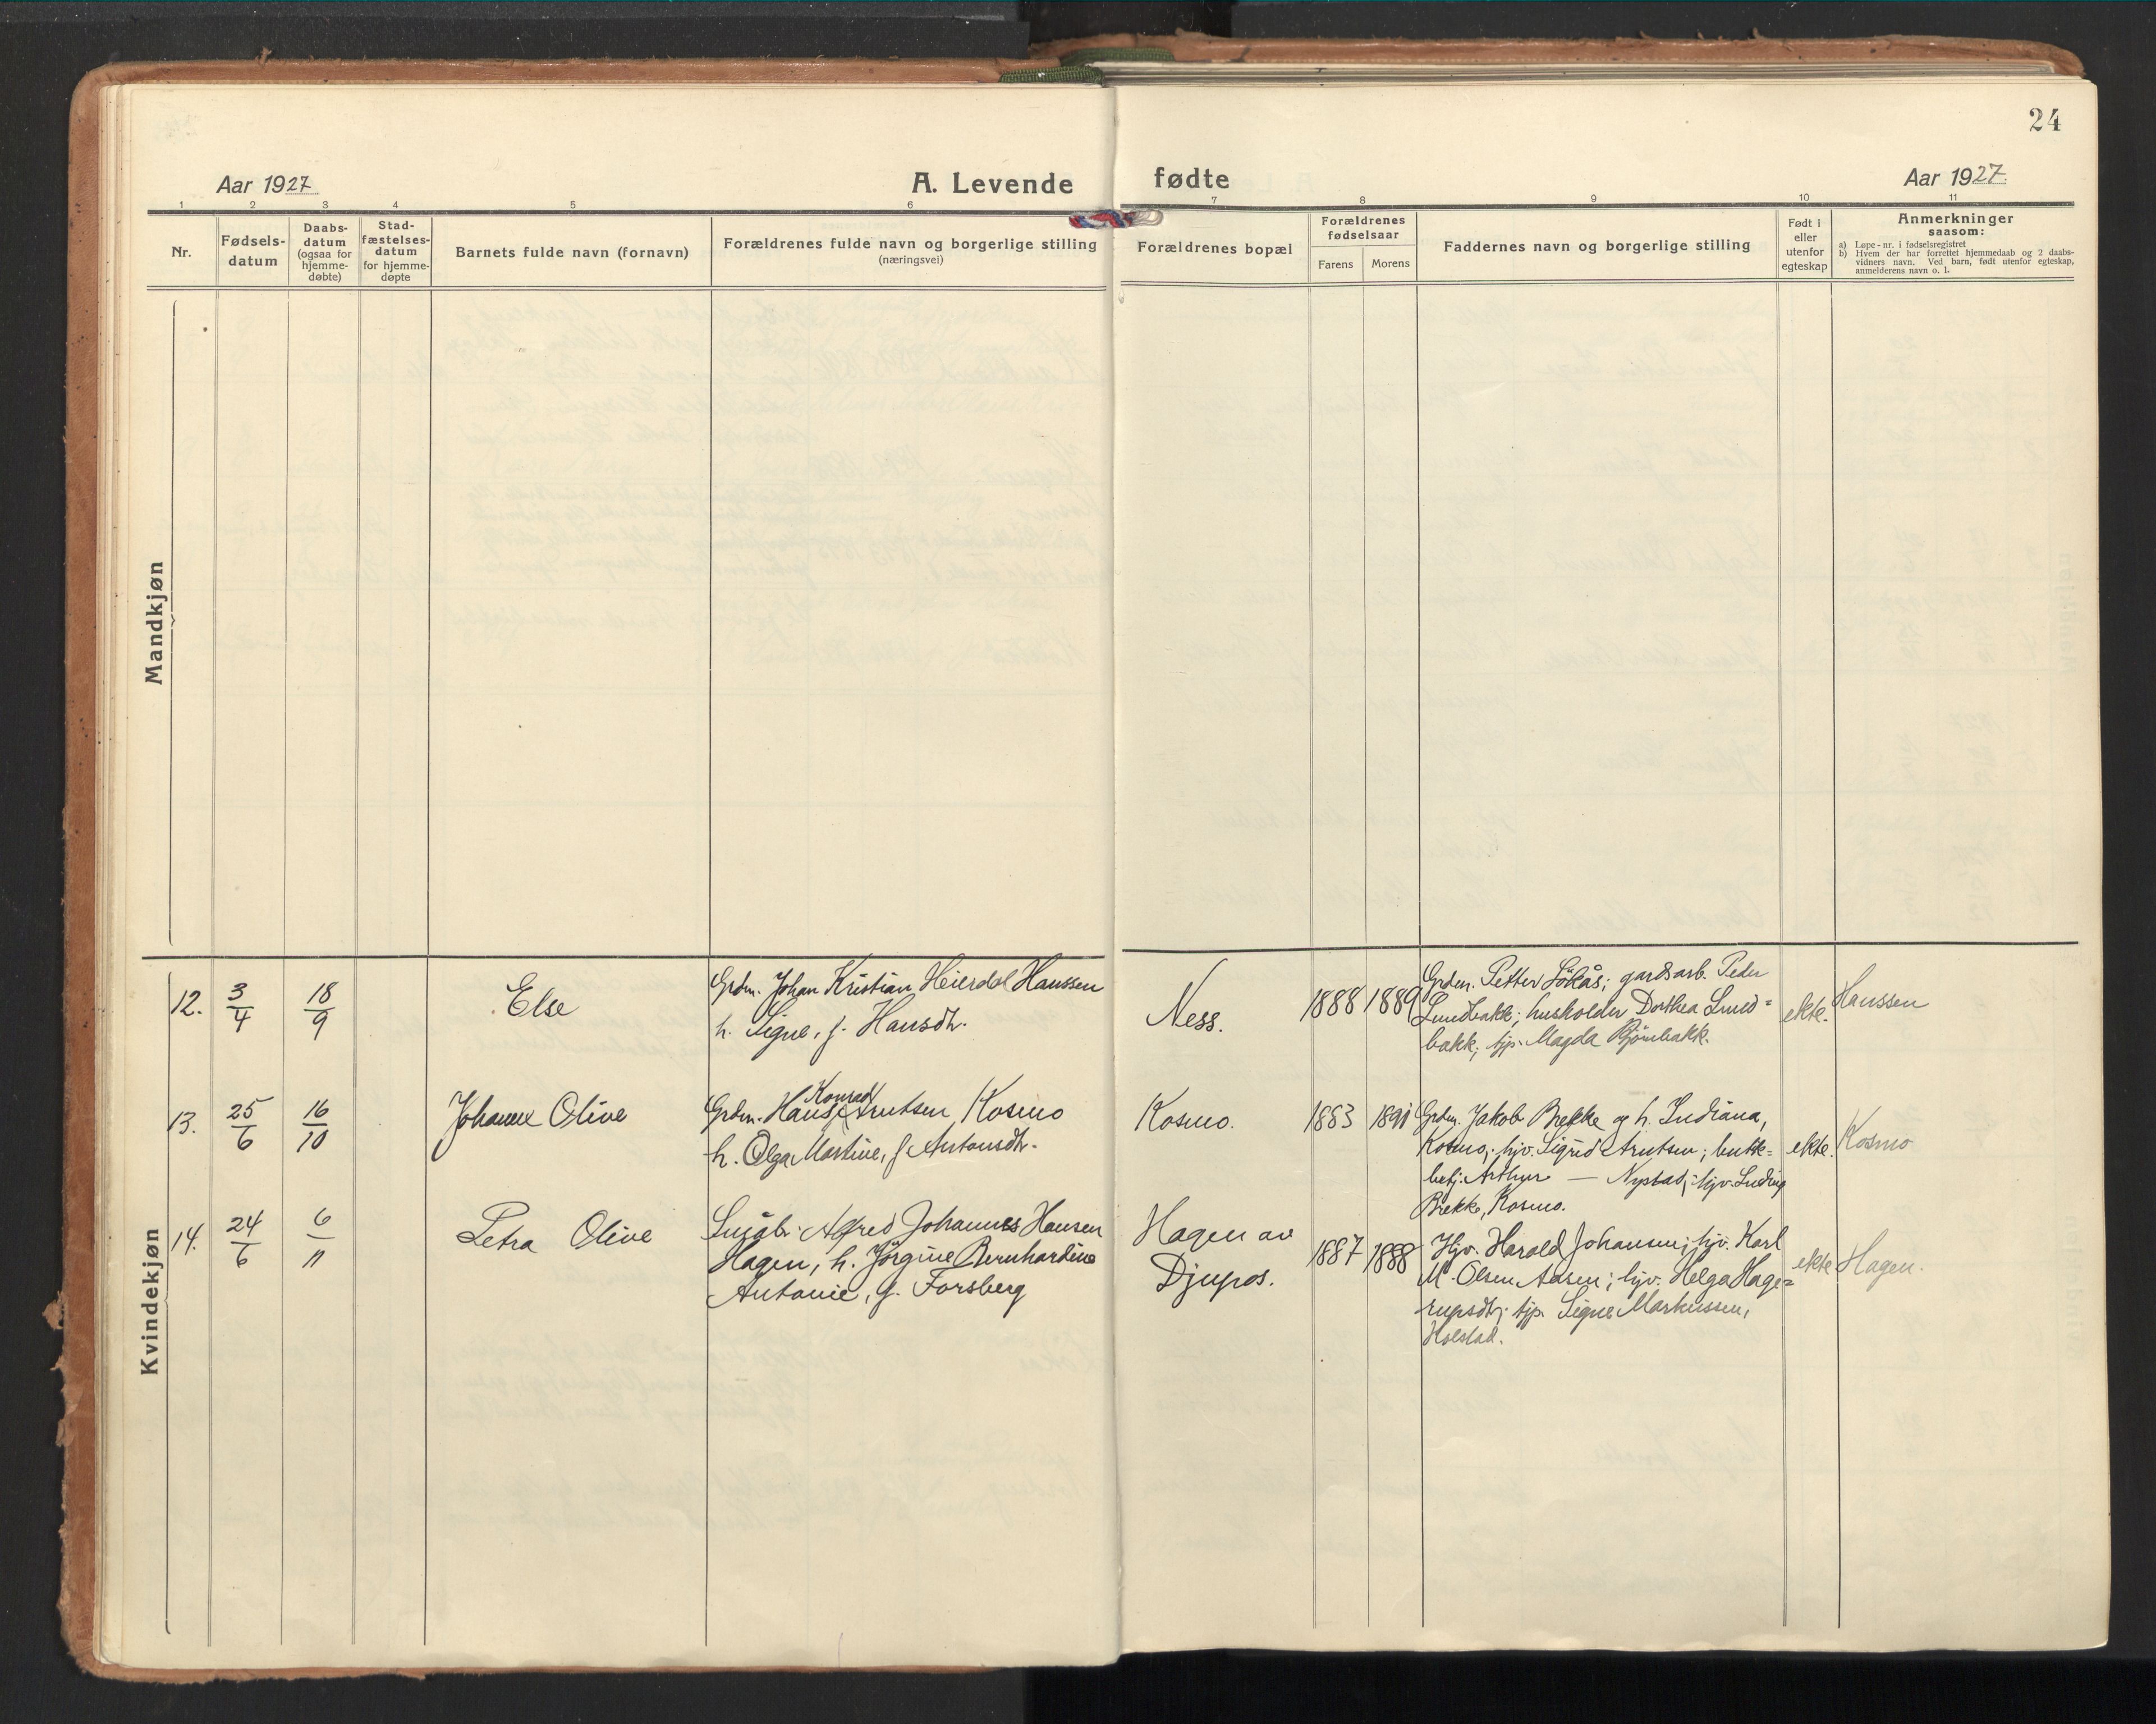 24
Aar 1927
A. Levende fødte
Aar 1927.
1 2 3 4 5 6 7 8 9 10 11
Nr.
Fødsels-
datum
Daabs-
datum
(ogsaa for
hjemme-
døbte)
Stad-
fæstelses-
datum
for hjemme-
døpte
Barnets fulde navn (fornavn)
Forældrenes fulde navn og borgerlige stilling
(næringsvei)
Forældrenes bopæl
Forældrenes
fødselsaar
Farens Morens
Faddernes navn og borgerlige stilling
Født i
eller
utenfor
egteskap
Anmerkninger
saasom:
a) Løpe-nr. i fødselsregistret
b) Hvem der har forrettet hjemmedaab og 2 daabs-
vidners navn. Ved barn, født utenfor egteskap,
anmelderens navn o. l.
Mandkjøn
Kvindekjøn
12. 3/4 18/9 Else
Grdm. Johan Kristian Heierdal Hanssen
h. Signe, f. Hansdtr.
Ness. 1888 1889
Grdm. Petter Løkås; gardsarb. Peder
Lundbakk; husholder Dorthea Lund=
bakk; tjp. Magda Bjørnbakk.
ekte. Hanssen
13. 25/6 16/10 Johanne Olive
Grdm. Hans Konrad Arntsen Kosmo
h. Olga Martine, f. Antonsdtr.
Kosmo. 1883 1891
Grdm. Jakob Brekke og h. Indiana,
Kosmo; hjv. Sigrid Arntsen; butik=
betj. Arthur — Nystad; hjv.
Brekke, Kosmo.
ekte. Kosmo
14. 24/6 6/11 Petra Olive
Småbr. Alfred Johannes Hansen
Hagen, h. Jørgine Bernhardine
Antonie, f. Forsberg
Hagen av
Djupos.
1887 1888
Hjv. Harald Johansen; hjv. Karl
M. Olsen Aasen; hjv. Helga Hage=
rupsdtr; tjp. Signe Markussen,
Holstad.
ekte Hagen.